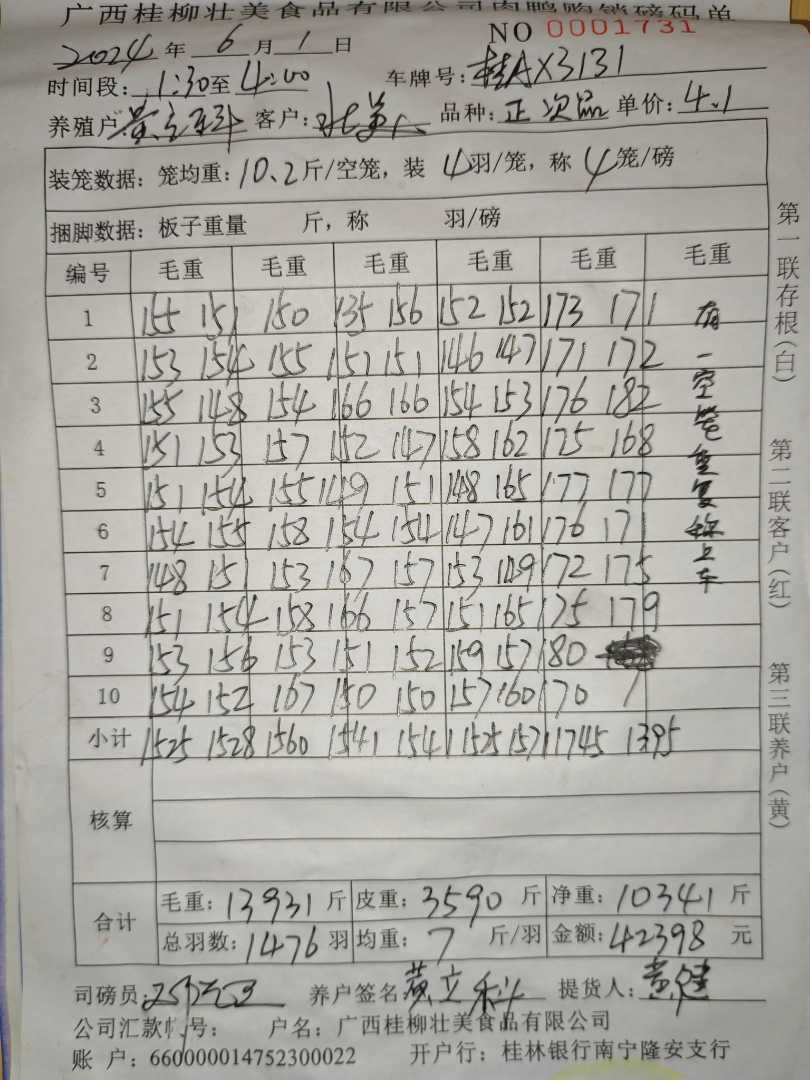 广西桂柳壮美食品有限公司肉鸭购销磅码单
NO 0001731
2024年6月1日
时间段:1:30至4:00 车牌号:桂AX3131
养殖户黄立科 客户:壮美 品种:正次品 单价:4.1
装笼数据:笼均重:10.2斤/空笼,装4羽/笼,称4笼/磅
捆脚数据:板子重量 斤,称 羽/磅
编号 毛重 毛重 毛重 毛重 毛重 毛重
1 155 151 150 135 156 152 152 173 171
2 153 154 155 151 151 146 147 171 172
3 155 148 154 166 166 154 153 176 182
4 151 153 157 152 147 158 162 175 168
5 151 154 155 149 151 148 165 177 177
6 154 155 158 154 154 147 161 176 171
7 148 151 153 167 157 153 149 172 175
8 151 154 158 166 157 151 165 175 179
9 153 156 153 151 152 159 157 180
10 154 152 167 150 150 157 160 170 /
小计 1525 1528 1560 1541 1541 1525 1571 1745 1395
有一空笼重复称上车
核算
合计 毛重:13931斤 皮重:3590斤 净重:10341斤
总羽数:1476羽 均重:7斤/羽 金额:42398元
司磅员: 养户签名黄立科 提货人:黄健
公司汇款帐号: 户名:广西桂柳壮美食品有限公司
账户:660000014752300022 开户行:桂林银行南宁隆安支行
第一联存根(白)
第二联客户(红)
第三联养户(黄)